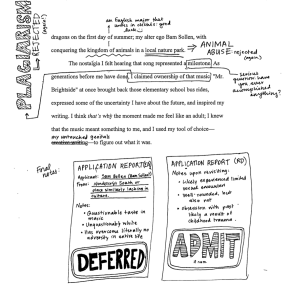 PLAGIARISM
REJECTED
(again!)
an English major that
good
luck
dragons on the first day of summer; my alter ego Bam Sollen, with
conquering the kingdom of animals in a local nature park.
→ ANIMAL
ABUSE rejected
(again)
The nostalgia I felt hearing that song represented a milestone. As
generations before me have done, I claimed ownership of that music. "Mr.
← serious
question: have
you ever
accomplished
anything?
Brightside" at once brought back those elementary school bus rides,
expressed some of the uncertainty I have about the future, and inspired my
writing. I think that's why the moment made me feel like an adult; I knew
that the music meant something to me, and I used my tool of choice—
my untouched genitals
creative writing—to figure out what it was.
Final
notes:
APPLICATION REPORTER
Applicant: Sam Bollen (Bam Sollen?)
From: Nondescript South or
place similarly lacking in
culture.
Notes:
• Questionable taste in
music
• Unquestionably white
• Has overcome literally no
adversity in entire life
DEFERRED
APPLICATION REPORT (RD)
Notes upon revisiting:
• Likely experienced limited
sexual
• Well-rounded, but
also not
• Obsession with past
likely a result of
childhood trauma.
ADMIT